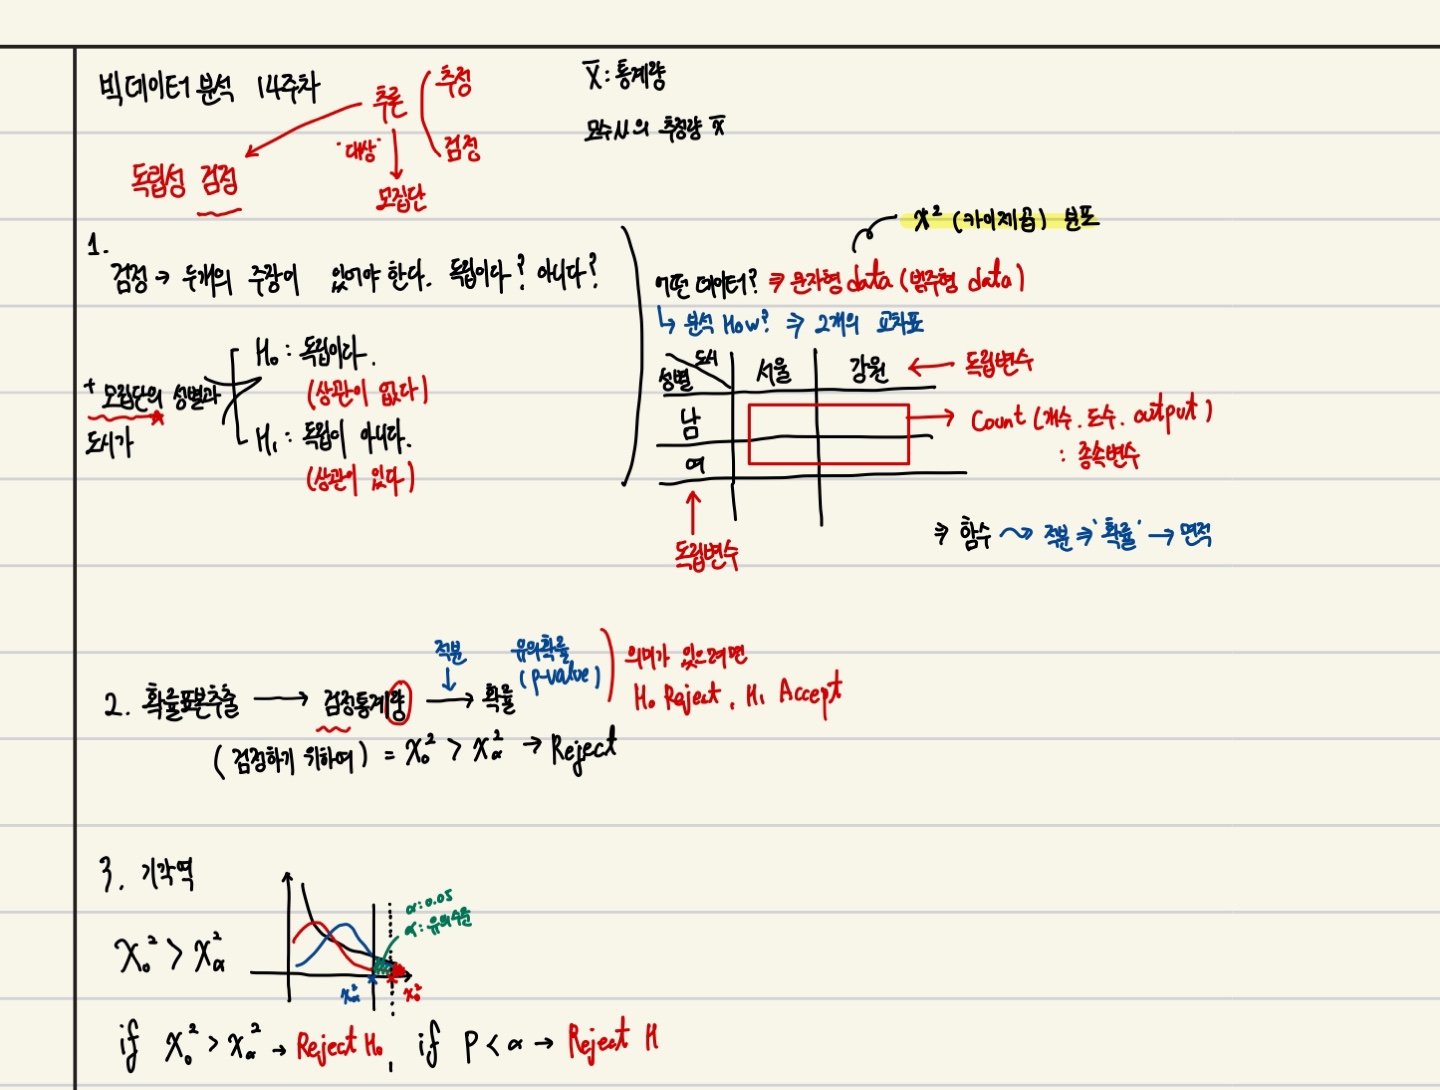 빅데이터 분석 14주차
추론
추정
검정
"대상"
모집단
독립성 검정
X̅ : 통계량
모수 μ의 추정량 x̅
1.
검정 → 두개의 주장이 있어야 한다. 독립이다? 아니다?
+ 모집단의 성별과
도시가
H₀ : 독립이다.
(상관이 없다)
H₁ : 독립이 아니다.
(상관이 있다)
x² (카이제곱) 분포
어떤 데이터? ⇒ 문자형 data (범주형 data)
↳ 분석 How? ⇒ 2개의 교차표
도시
성별
서울 강원 ← 독립변수
남
여
→ Count (개수. 도수. output)
: 종속변수
↑
독립변수
⇒ 함수 ⇝ 적분 ⇒ '확률' → 면적
2. 확률표본추출 → 검정통계량 → 확률
적분
↓
유의확률
(p-value)
의미가 있으려면
H₀ Reject, H₁ Accept
(검정하기 위하여) = x₀² > x²α → Reject
3. 기각역
x₀² > x²α
α : 0.05
α : 유의수준
x²α
x₀²
if x₀² > x²α → Reject H₀, if P < α → Reject H